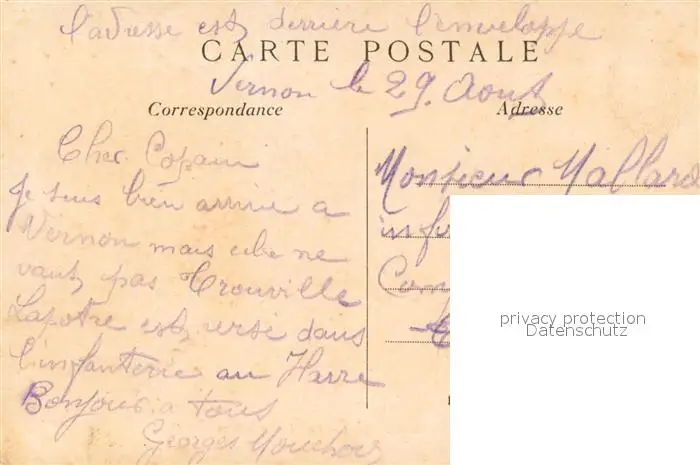 l'adresse est derrière l'enveloppe
CARTE POSTALE
Vernon le 29 Aout
Correspondance
Adresse
Cher Copain
Je suis bien arrivé a
Vernon mais cela ne
vaut pas Trouville
Lapotre est versé dans
l'infanterie au Havre
Bonjour a tous
Georges
Monsieur Mallard
privacy protection
Datenschutz